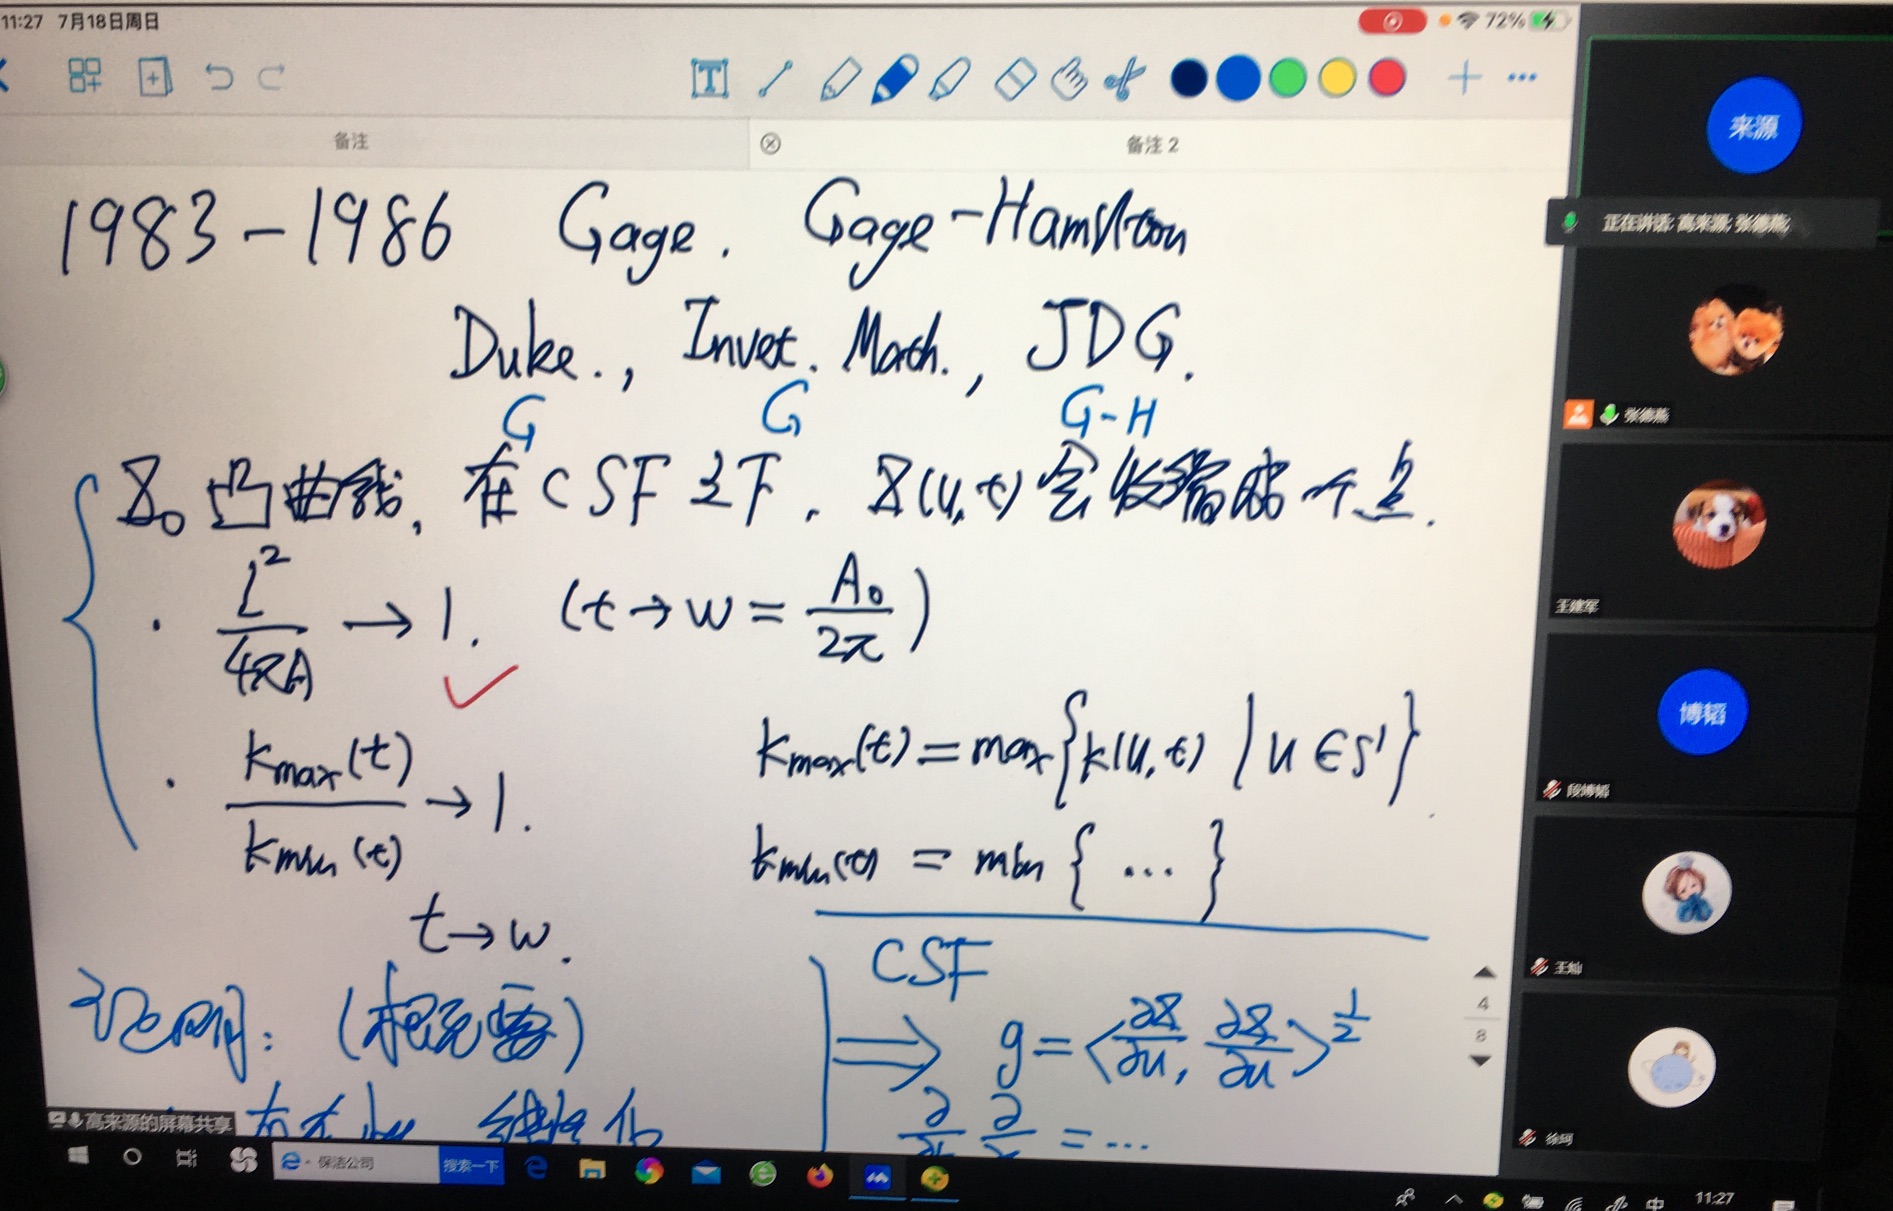 11:27 7月18日周日
72%
备注
备注 2
来源
正在讲话: 高来源; 张德燕;
1983-1986 Gage. Gage-Hamilton
Duke., Invet. Math., JDG.
G G G-H
X₀ 凸曲线, 在 CSF 之下, X(u,t) 会收缩成一个点.
· L²/4πA → 1. (t→w = A₀/2π)
✓
· kmax(t)/kmin(t) → 1.
kmax(t) = max{k(u,t) | u∈S¹}
kmin(t) = min { ... }
t→w.
CSF
证明: (抛物型)
⟹ g = <∂X/∂u, ∂X/∂u>^{1/2}
= ...
张德燕
王建军
博韬
段博韬
王灿
徐珂
4
8
高来源的屏幕共享
保洁公司
搜索一下
中
11:27